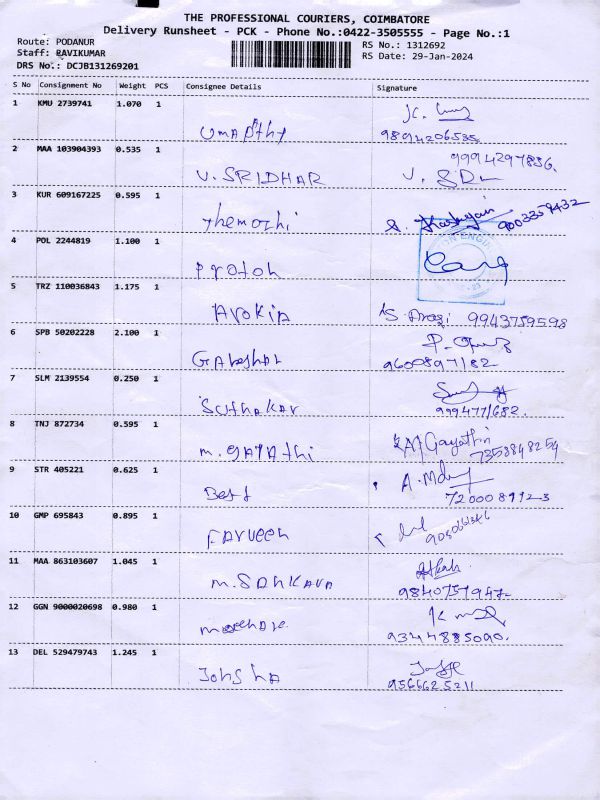 THE PROFESSIONAL COURIERS, COIMBATORE
Delivery Runsheet - PCK - Phone No.:0422-3505555 - Page No.:1
Route: PODANUR
Staff: RAVIKUMAR
DRS No.: DCJB131269201
RS No.: 1312692
RS Date: 29-Jan-2024
S No Consignment No Weight PCS Consignee Details Signature
1 KMU 2739741 1.070 1
9894206535
2 MAA 103904393 0.535 1 V. SRIDHAR
9994297836
3 KUR 609167225 0.595 1 Themozhi
9003359432
4 POL 2244819 1.100 1 Proton
5 TRZ 110036843 1.175 1 Arokia
9943759598
6 SPB 50202228 2.100 1
9600897182
7 SLM 2139554 0.250 1 Suthakar
9994771682.
8 TNJ 872734 0.595 1 M. GAYAthi
Gayathri
7358848254
9 STR 405221 0.625 1 Best
7200089123
10 GMP 695843 0.895 1 Farveen
11 MAA 863103607 1.045 1 M. Sankara
9840757947
12 GGN 9000020698 0.980 1
9344885090.
13 DEL 529479743 1.245 1
9566625211